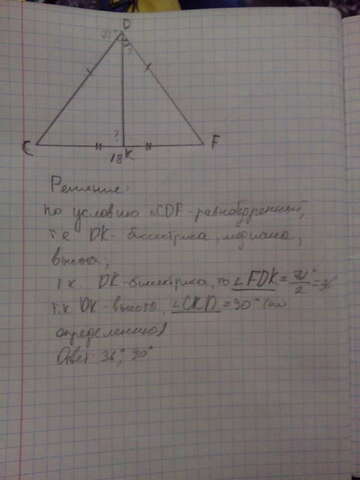 D
?
C
18
K
F
Решение:
по условию △CDF - равнобедренный,
т.е DK - биссектриса, медиана,
высота,
т.к. DK - биссектриса, то ∠FDK = 72°/2 = 36
т.к DK - высота, ∠CKD = 90° (по
определению)
Ответ 36°, 90°